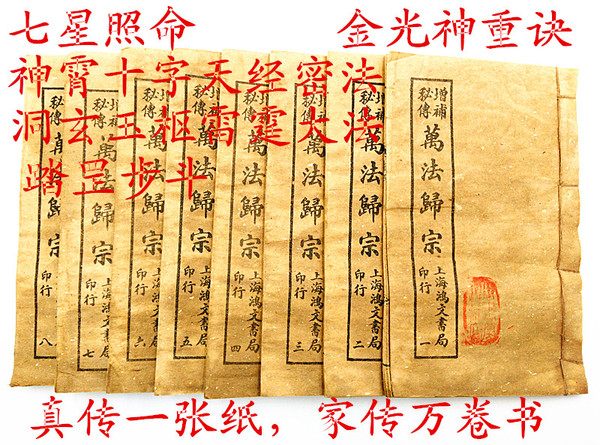 七星照命 金光神重诀
神霄十字天经密法
洞玄玉枢雷霆大法
踏罡步斗
增補
秘傳
萬法歸宗
上海鴻文書局
印行
一
增補
秘傳
萬法歸宗
上海鴻文書局
印行
二
增補
秘傳
萬法歸宗
上海鴻文書局
印行
三
增補
秘傳
萬法歸宗
上海鴻文書局
印行
四
增補
秘傳
萬法歸宗
上海鴻文書局
印行
五
增補
秘傳
萬法歸宗
印行
六
增補
秘傳
萬法歸宗
印行
七
秘傳
歸宗
印行
八
真传一张纸，家传万卷书